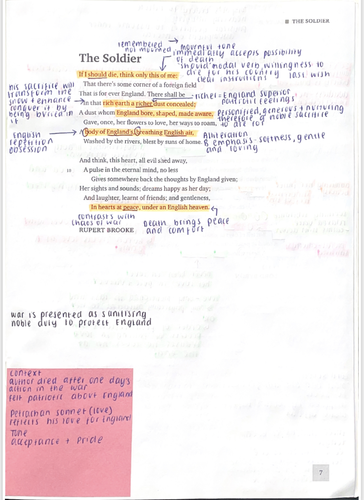 THE SOLDIER
remembered
not mourned
mournful tone
immediatly accepts possibility
of death
'should' modal verb, willingness to
die for his country last wish
clear intentions
The Soldier
If I should die, think only this of me:
That there's some corner of a foreign field
That is for ever England. There shall be
In that rich earth a richer dust concealed;
A dust whom England bore, shaped, made aware,
Gave, once, her flowers to love, her ways to roam,
A body of England's, breathing English air,
Washed by the rivers, blest by suns of home.
And think, this heart, all evil shed away,
10
A pulse in the eternal mind, no less
Gives somewhere back the thoughts by England given;
Her sights and sounds; dreams happy as her day;
And laughter, learnt of friends; and gentleness,
In hearts at peace, under an English heaven.
RUPERT BROOKE
his sacrifice will
transform the
land + enhance
conquer it by
being buried in
it
English
repetition
obsession
richer = England superior
patriotic feelings
Personified, generous + nurturing
therefore a noble sacrifice
to die for
Alliteration
B emphasis: softness, gentle
and loving
contrasts with
chaos of war
death brings peace
and comfort
war is presented as sanitising
noble duty to protect England
context
author died after one days
action in the war
felt patriotic about England
Petrarchan sonnet (love)
reflects his love for England
Tone
acceptance + pride
7